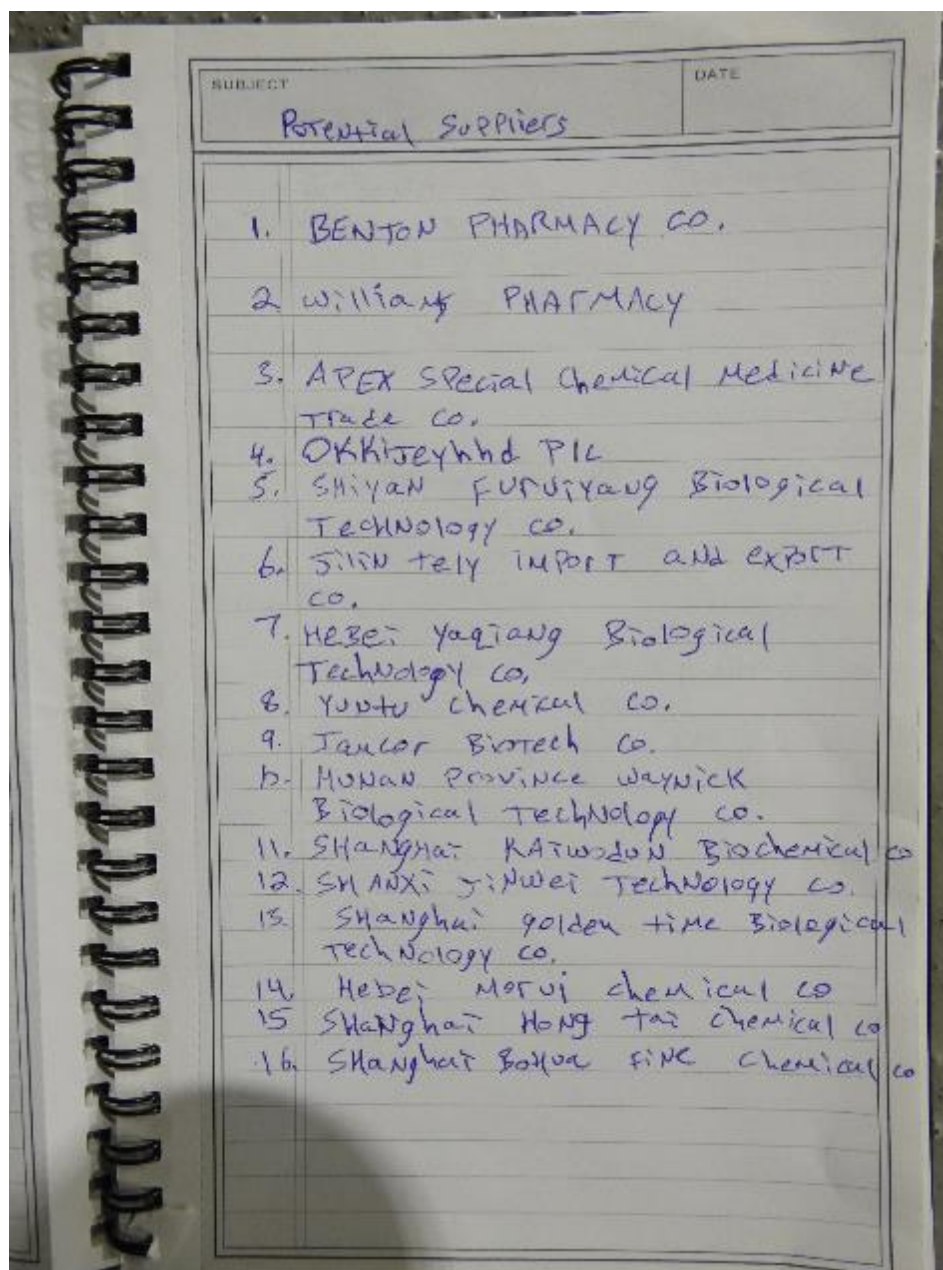 SUBJECT
DATE
Potential Suppliers
1. BENTON PHARMACY CO.
2 Williams PHARMACY
3. APEX Special Chemical Medicine
Trade CO.
4. OKKIJeyhhd PLC
5. SHiyaN FURUiYang Biological
TechNology CO.
6. Jilin tely IMPORT and EXPORT
CO.
7. HEBEi Yaqiang Biological
TechNology CO.
8. Yuntu Chemical CO.
9. Jancor Biotech CO.
10. HUNAN PROVINCE WayNick
Biological TechNology CO.
11. SHangHai KAiwodun Biochemical co
12. SHANXi JiNWei TechNology CO.
13. SHanghai golden time Biological
TechNology CO.
14. Hebei Morui chemical co
15 SHaNghai HONg tai chemical co
16. SHanghai BoHua FiNE chemical co